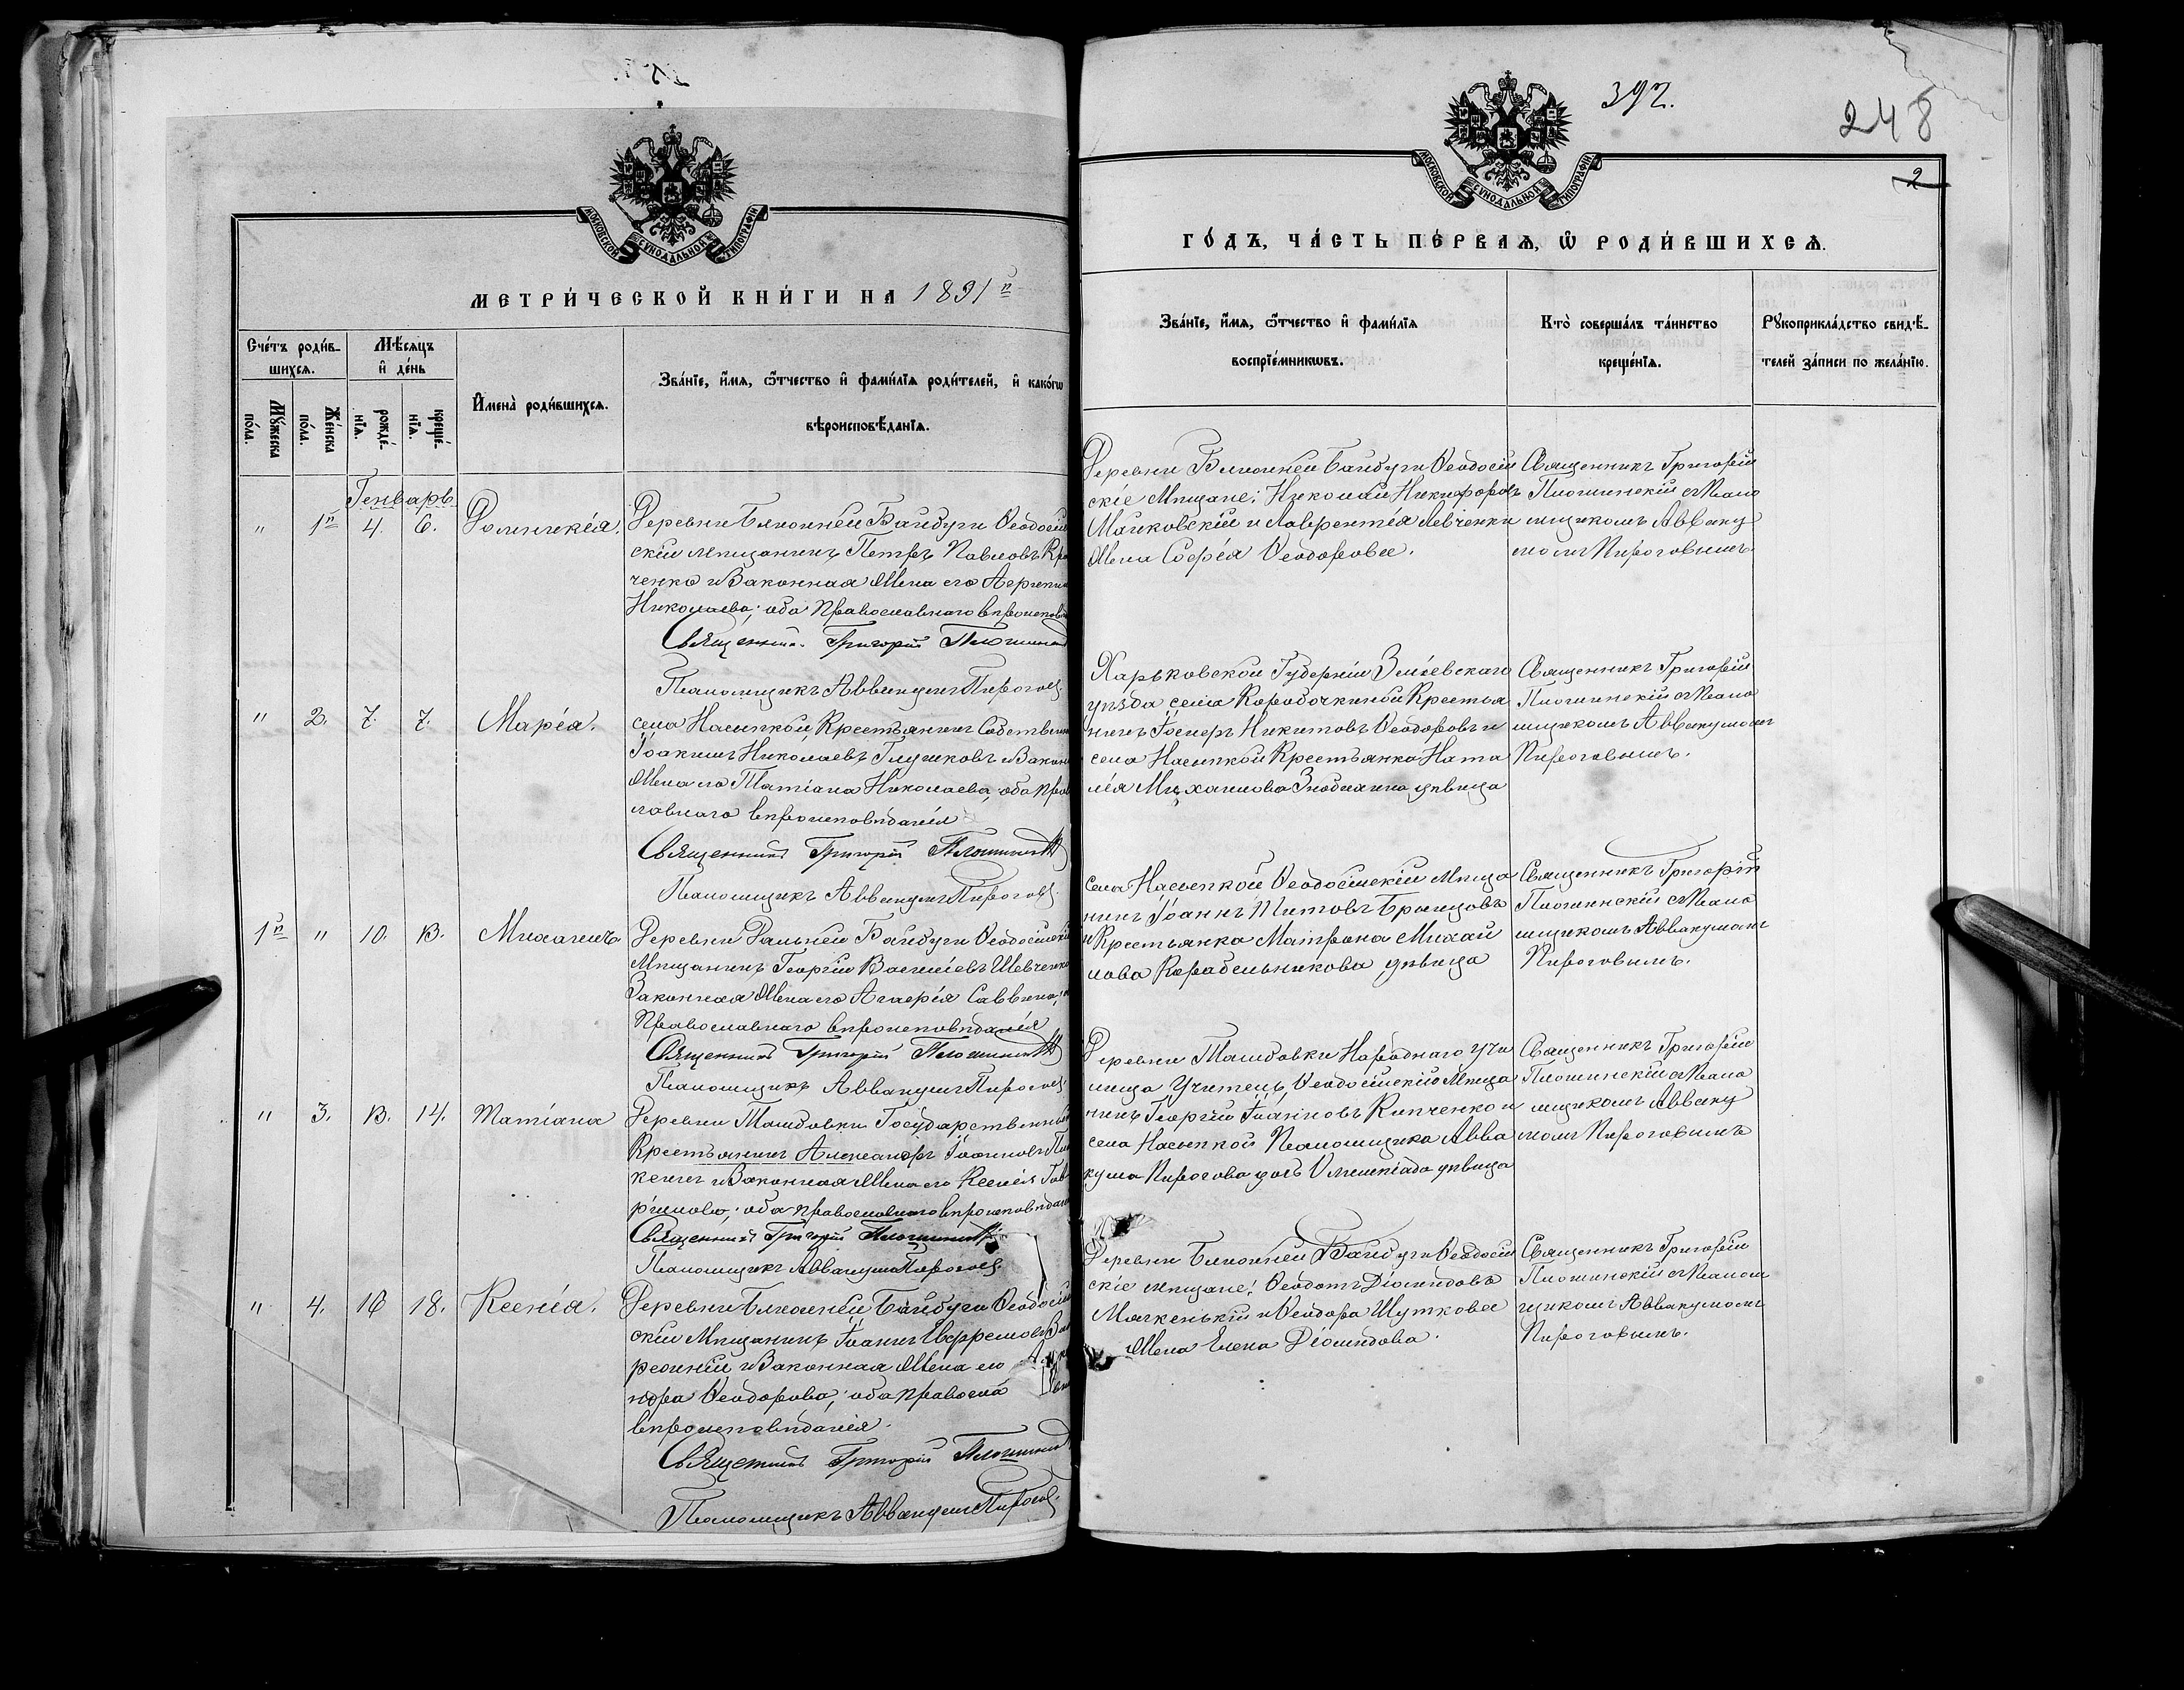 МОСКОВСКОЙ СѴНОДАЛЬНОЙ ТИПОГРАФІИ
МЕТРИ́ЧЕСКОЙ КНИ́ГИ НА 1891й
Сче́тъ роди́в-
шихсѧ.
Мѣ́сѧцъ
и҆ де́нь
Мꙋ́жеска
по́ла.
Же́нска
по́ла.
рожде́-
нїѧ.
креще́-
нїѧ.
И҆мена̀ роди́вшихсѧ.
Зва́нїе, и҆́мѧ, ѻ҆́тчество и҆ фами́лїѧ роди́телей, и҆ како́гѡ
вѣроисповѣ́данїѧ.
Генварь
" 1й 4. 6. Домникія.
Деревни Ближней Байбуги Ѳеодосій
скій мѣщанинъ Петръ Павловъ
ченко и Законная Жена его
Николаева; оба Православнаго вѣроисповѣ
Священникъ Григорій Плошинскій
Псаломщикъ Аввакумъ Пироговъ
" 2. 7. 7. Марія.
села Насыпкой Крестьянинъ Собственн
Іоакимъ Николаевъ Глушковъ и Закон
Жена его Татіана Николаева, оба Прав
лавнаго вѣроисповѣданія
Священникъ Григорій Плошинскій
Псаломщикъ Аввакумъ Пироговъ
1й " 10. 13. Михаилъ
Деревни Дальней Байбуги Ѳеодосійскій
Мѣщанинъ Георгій Василіевъ Шевченко
Законная Жена его Агафія Саввина;
Православнаго вѣроисповѣданія
Священникъ Григорій Плошинскій
Псаломщикъ Аввакумъ Пироговъ
" 3. 13. 14. Татіана
Деревни Тамбовки Государственный
Крестьянинъ Александръ Іоанновъ
и Законная Жена его Ксенія Гав
ріилова; оба православнаго вѣроисповѣдан
Священникъ Григорій Плошинскій
Псаломщикъ Аввакумъ Пироговъ
" 4. 16 18. Ксенія.
Деревни Ближней Байбуги Ѳеодосій
скій Мѣщанинъ Іоаннъ Евфремовъ
и Законная Жена его
Ѳеодорова; оба правосла
вѣроисповѣданія.
Священникъ Григорій Плошинскій
Псаломщикъ Аввакумъ Пироговъ.
392.
248
2
МОСКОВСКОЙ СѴНОДАЛЬНОЙ ТИПОГРАФІИ
ГО́ДЪ, ЧА́СТЬ ПЕ́РВАѦ, Ѡ҆ РОДИ́ВШИХСѦ.
Зва́нїе, и҆́мѧ, ѻ҆́тчество и҆ фами́лїѧ
воспрїе́мникѡвъ.
Кто̀ соверша́лъ та́инство
креще́нїѧ.
Рꙋкоприкла́дство свидѣ́-
телей за́писи по жела́нїю.
Деревни Ближней Байбуги Ѳеодосій
скіе Мѣщане: Николай Никифоровъ
Майковскій и Лаврентія Левченки
Жена Софія Ѳеодоровa.
Священникъ Григорій
Плошинскій съ Псало
мщикомъ Авваку
момъ Пироговымъ.
Харьковской Губерніи Зміевскаго
уѣзда села Коробочкиной Крестья
нинъ Іосифъ Никитовъ Ѳеодоровъ и
села Насыпкой Крестьянка Ната
лія Михаилова дѣвица
Священникъ Григорій
Плошинскій съ Псало
мщикомъ Аввакумомъ
Пироговымъ.
Села Насыпкой Ѳеодосійскій Мѣща
нинъ Іоаннъ Титовъ
и Крестьянка Матрона Михаи
лова Корабельникова дѣвица
Священникъ Григорій
Плошинскій съ Псало
мщикомъ Аввакумомъ
Пироговымъ.
Деревни Тамбовки Народнаго Учи
лища Учитель Ѳеодосійскій Мѣща
нинъ Георгій Іоанновъ Кипченко и
села Насыпкой Псаломщика Авва
кума Пирогова дочь Олимпіада дѣвица
Священникъ Григорій
Плошинскій съ Псало
мщикомъ Авваку
момъ Пироговымъ
Деревни Ближней Байбуги Ѳеодосій
скіе мѣщане: Ѳеодотъ Діомидовъ
и Ѳеодора
Жена Елена Діомидова.
Священникъ Григорій
Плошинскій съ Псалом
щикомъ Аввакумомъ
Пироговымъ.